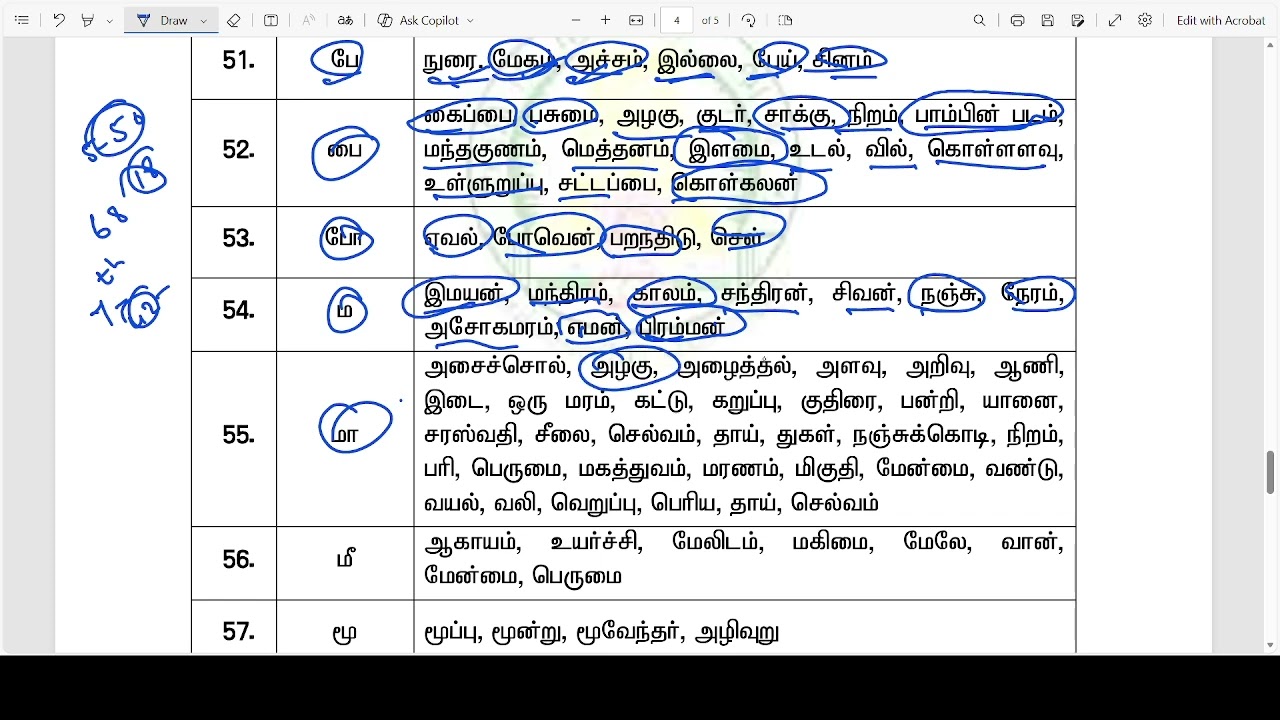 Draw
Ask Copilot
4 of 5
Edit with Acrobat
51. பே நுரை, மேகம், அச்சம், இல்லை, பேய், சினம்
52. பை கைப்பை பசுமை, அழகு, குடர், சாக்கு, நிறம், பாம்பின் படம்,
மந்தகுணம், மெத்தனம், இளமை, உடல், வில், கொள்ளளவு,
உள்ளுறுப்பு, சட்டப்பை, கொள்கலன்
53. போ ஏவல், போவென், பறந்திடு, செல்
54. ம இமயன், மந்திரம், காலம், சந்திரன், சிவன், நஞ்சு, நேரம்,
அசோகமரம், எமன், பிரம்மன்
55. மா அசைச்சொல், அழகு, அழைத்தல், அளவு, அறிவு, ஆணி,
இடை, ஒரு மரம், கட்டு, கறுப்பு, குதிரை, பன்றி, யானை,
சரஸ்வதி, சீலை, செல்வம், தாய், துகள், நஞ்சுக்கொடி, நிறம்,
பரி, பெருமை, மகத்துவம், மரணம், மிகுதி, மேன்மை, வண்டு,
வயல், வலி, வெறுப்பு, பெரிய, தாய், செல்வம்
56. மீ ஆகாயம், உயர்ச்சி, மேலிடம், மகிமை, மேலே, வான்,
மேன்மை, பெருமை
57. மூ மூப்பு, மூன்று, மூவேந்தர், அழிவுறு